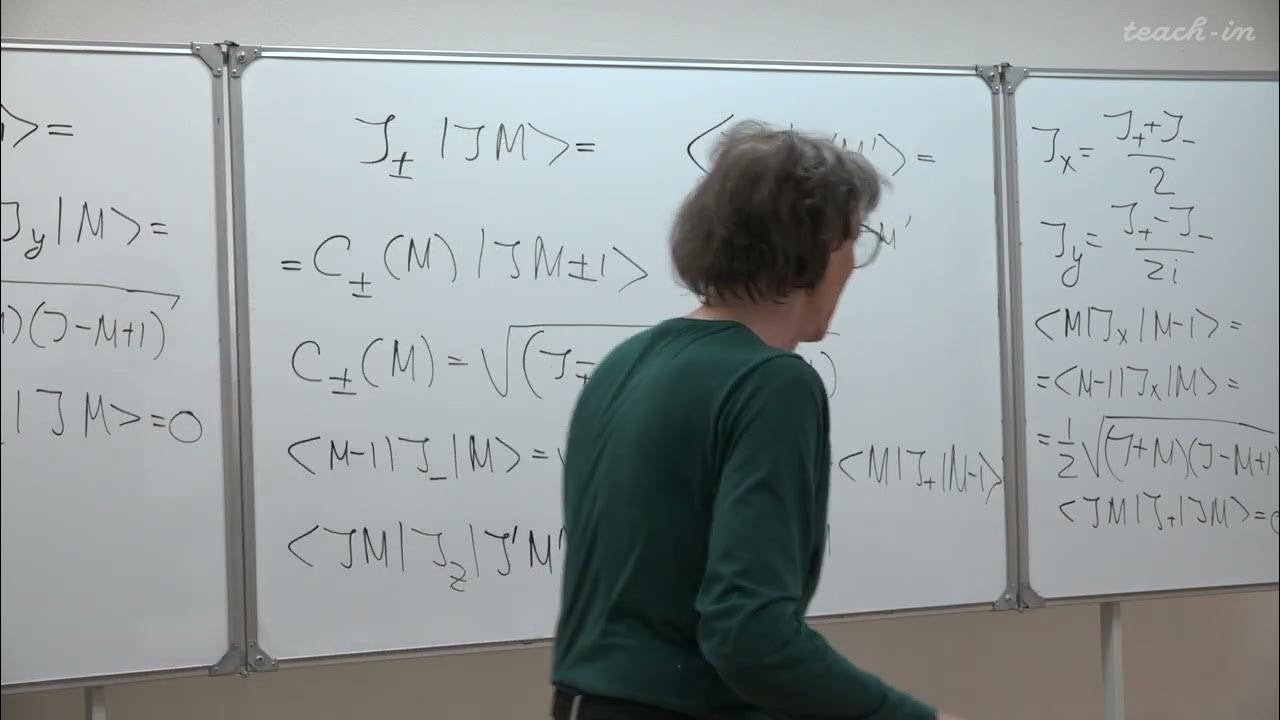 teach-in
⟩=
J_y|M⟩=
)(J-M+1)
|JM⟩=0
J_± |JM⟩=
M'⟩=
=C_±(M)|JM±1⟩
M'
C_±(M)=√(J∓
⟨M-1|J_-|M⟩=
⟨M|J_+|M-1⟩
⟨JM|J_z|J'M'
J_x=(J_++J_-)/2
J_y=(J_+-J_-)/2i
⟨M|J_x|M-1⟩=
=⟨M-1|J_x|M⟩=
=1/2√(J+M)(J-M+1)
⟨JM|J_+|JM⟩=0